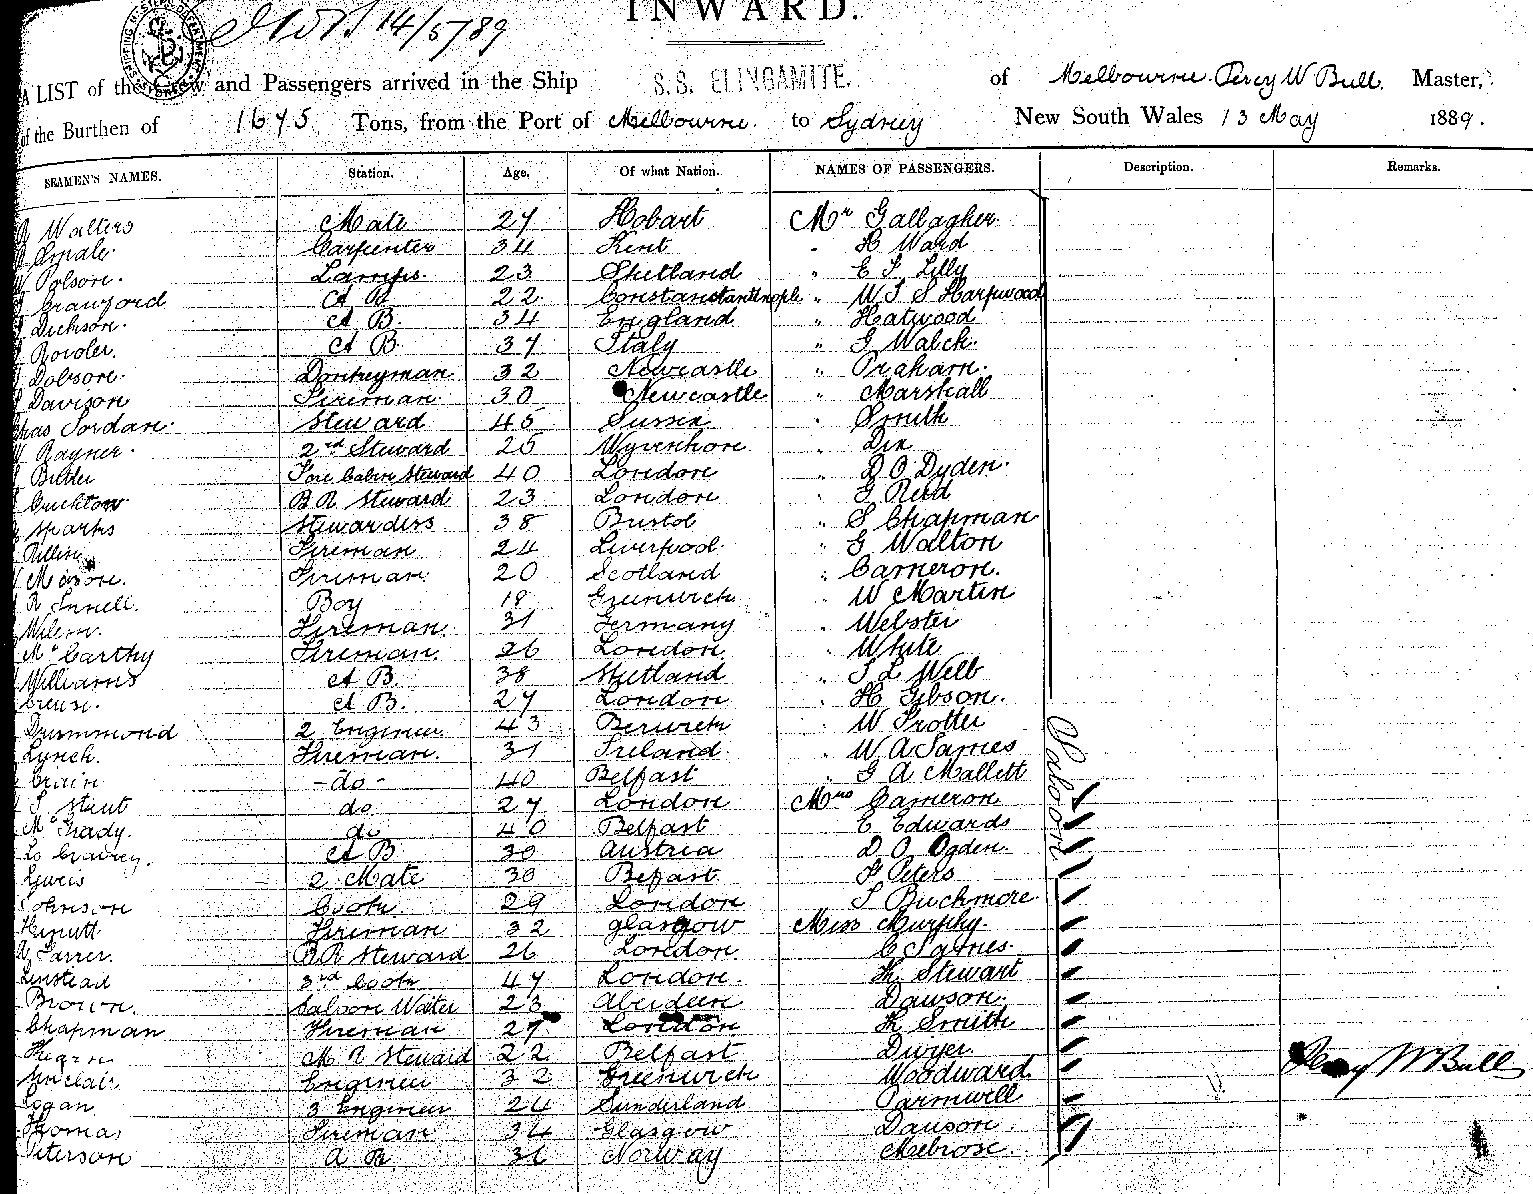 14/5/89
INWARD.
A LIST of the Crew and Passengers arrived in the Ship S.S. ELINGAMITE. of Melbourne. Percy W Bull. Master,
of the Burthen of 1675 Tons, from the Port of Melbourne. to Sydney New South Wales 13 May 1889.
SEAMEN'S NAMES. Station. Age. Of what Nation. NAMES OF PASSENGERS. Description. Remarks.
Walters Mate 27 Hobart Mr Gallagher.
Smale. Carpenter 34 Kent " H Ward
Polson. Lamps. 23 Shetland " E S Lilly
Crawford A B 22 Constantinople " W T S Harpwood
Dickson. A B 34 England " Hatwood
A B 37 Italy " G Walch.
Dobson. Donkeyman 32 Newcastle " Praham.
Davison Fireman. 30 Newcastle " Marshall
Chas Jordan. Steward 45 Sussex " Smith
Rayner. 2nd Steward 25 Wyvenhoe " Dix
Fore Cabin Steward 40 London " D O Dyden.
Crichton B R Steward 23 London " G Reid
Sparks Stewardess 38 Bristol " S Chapman
Fireman 24 Liverpool. " G Walton
Fireman. 20 Scotland " Cameron.
Boy 18 Greenwich " W Martin
Fireman. 31 Germany " Webster
McCarthy Fireman. 26 London. " White
Williams A B. 38 Shetland " T L Webb
A B. 27 London " H Gibson.
Drummond 2 Engineer 43 Berwick " W Trotter
Lynch. Fireman. 31 Ireland " W A James
Crain -do- 40 Belfast " G A Mallett
do 27 London Mrs Cameron
McGrady. do 40 Belfast E Edwards
A B 30 Austria D O Ogden.
Lewis 2 Mate 30 Befast. Peters
Johnson Cook. 29 London Buchmore
Fireman 32 Glasgow Miss Murphy.
Farrer. B R Steward 26 London. C James.
Linstead 3rd Cook 47 London. K Stewart
Brown. Saloon Waiter 23 Aberdeen Dawson.
Chapman Fireman 27 London K Smith
M R Steward 22 Belfast Dwyer
Sinclair. Engineer 32 Greenwich Woodward
Logan 3 Engineer 24 Sunderland
Thomas Fireman 34 Glasgow Dawson.
Peterson A B. 31 Norway Melrose.
Saloon
Percy W Bull